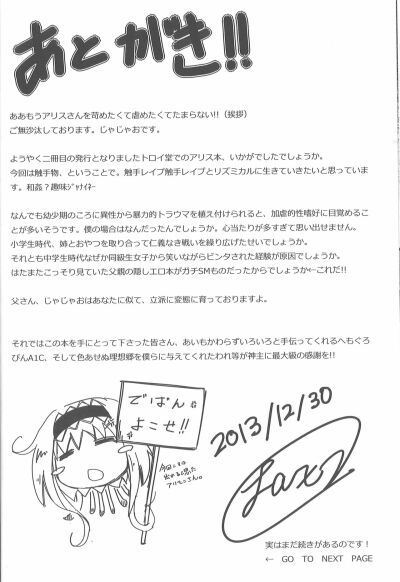 あとがき!!
ああもうアリスさんを苛めたくて虐めたくてたまらない!!（挨拶）
ご無沙汰しております。じゃじゃおです。
ようやく二冊目の発行となりましたトロイ堂でのアリス本、いかがでしたでしょうか。
今回は触手物、ということで。触手レイプ触手レイプとリズミカルに生きていきたいと思っています。
和姦？趣味ジャナイネー
なんでも幼少期のころに異性から暴力的トラウマを植え付けられると、加虐的性嗜好に目覚めることが多いそうです。僕の場合はなんだったんでしょうか。心当たりが多すぎて思い出せません。
小学生時代、姉とおやつを取り合って仁義なき戦いを繰り広げたせいでしょうか。
それとも中学生時代なぜか同級生女子から笑いながらビンタされた経験が原因でしょうか。
はたまたこっそり見ていた父親の隠しエロ本がガチSMものだったからでしょうか←これだ!!
父さん、じゃじゃおはあなたに似て、立派に変態に育っておりますよ。
それではこの本を手にとって下さった皆さん、あいもかわらずいろいろと手伝ってくれるへもぐろびんA1C、そして色あせぬ理想郷を僕らに与えてくれたわれ等が神主に最大級の感謝を!!
でばん
よこせ!!
2013/12/30
実はまだ続きがあるのです！
← GO TO NEXT PAGE